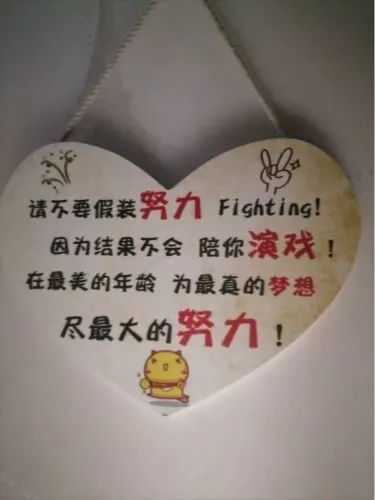 请不要假装努力 Fighting!
因为结果不会 陪你演戏！
在最美的年龄 为最真的梦想
尽最大的努力！